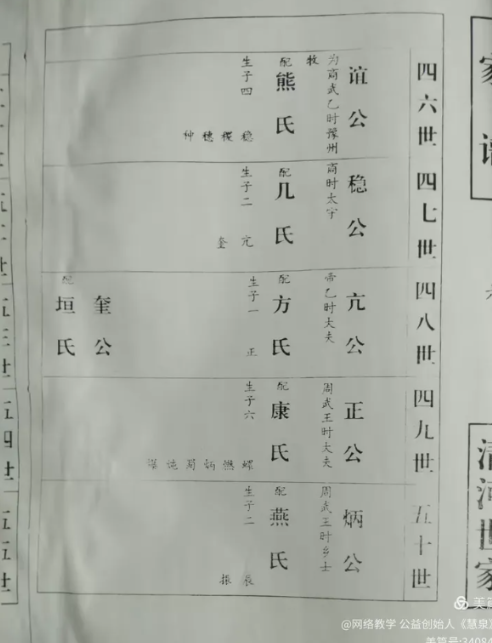 家谱
清河世家
四六世
谊公
为商武乙时豫州牧
配熊氏
生子四
稳 稷 穗 种
四七世
稳公
商时太宇
配几氏
生子二
亢 奎
四八世
亢公
帝乙时大夫
配方氏
生子一
正
奎公
配垣氏
四九世
正公
周武王时大夫
配康氏
生子六
五十世
炳公
周武王时乡士
配燕氏
生子二
@网络教学 公益创始人《慧泉